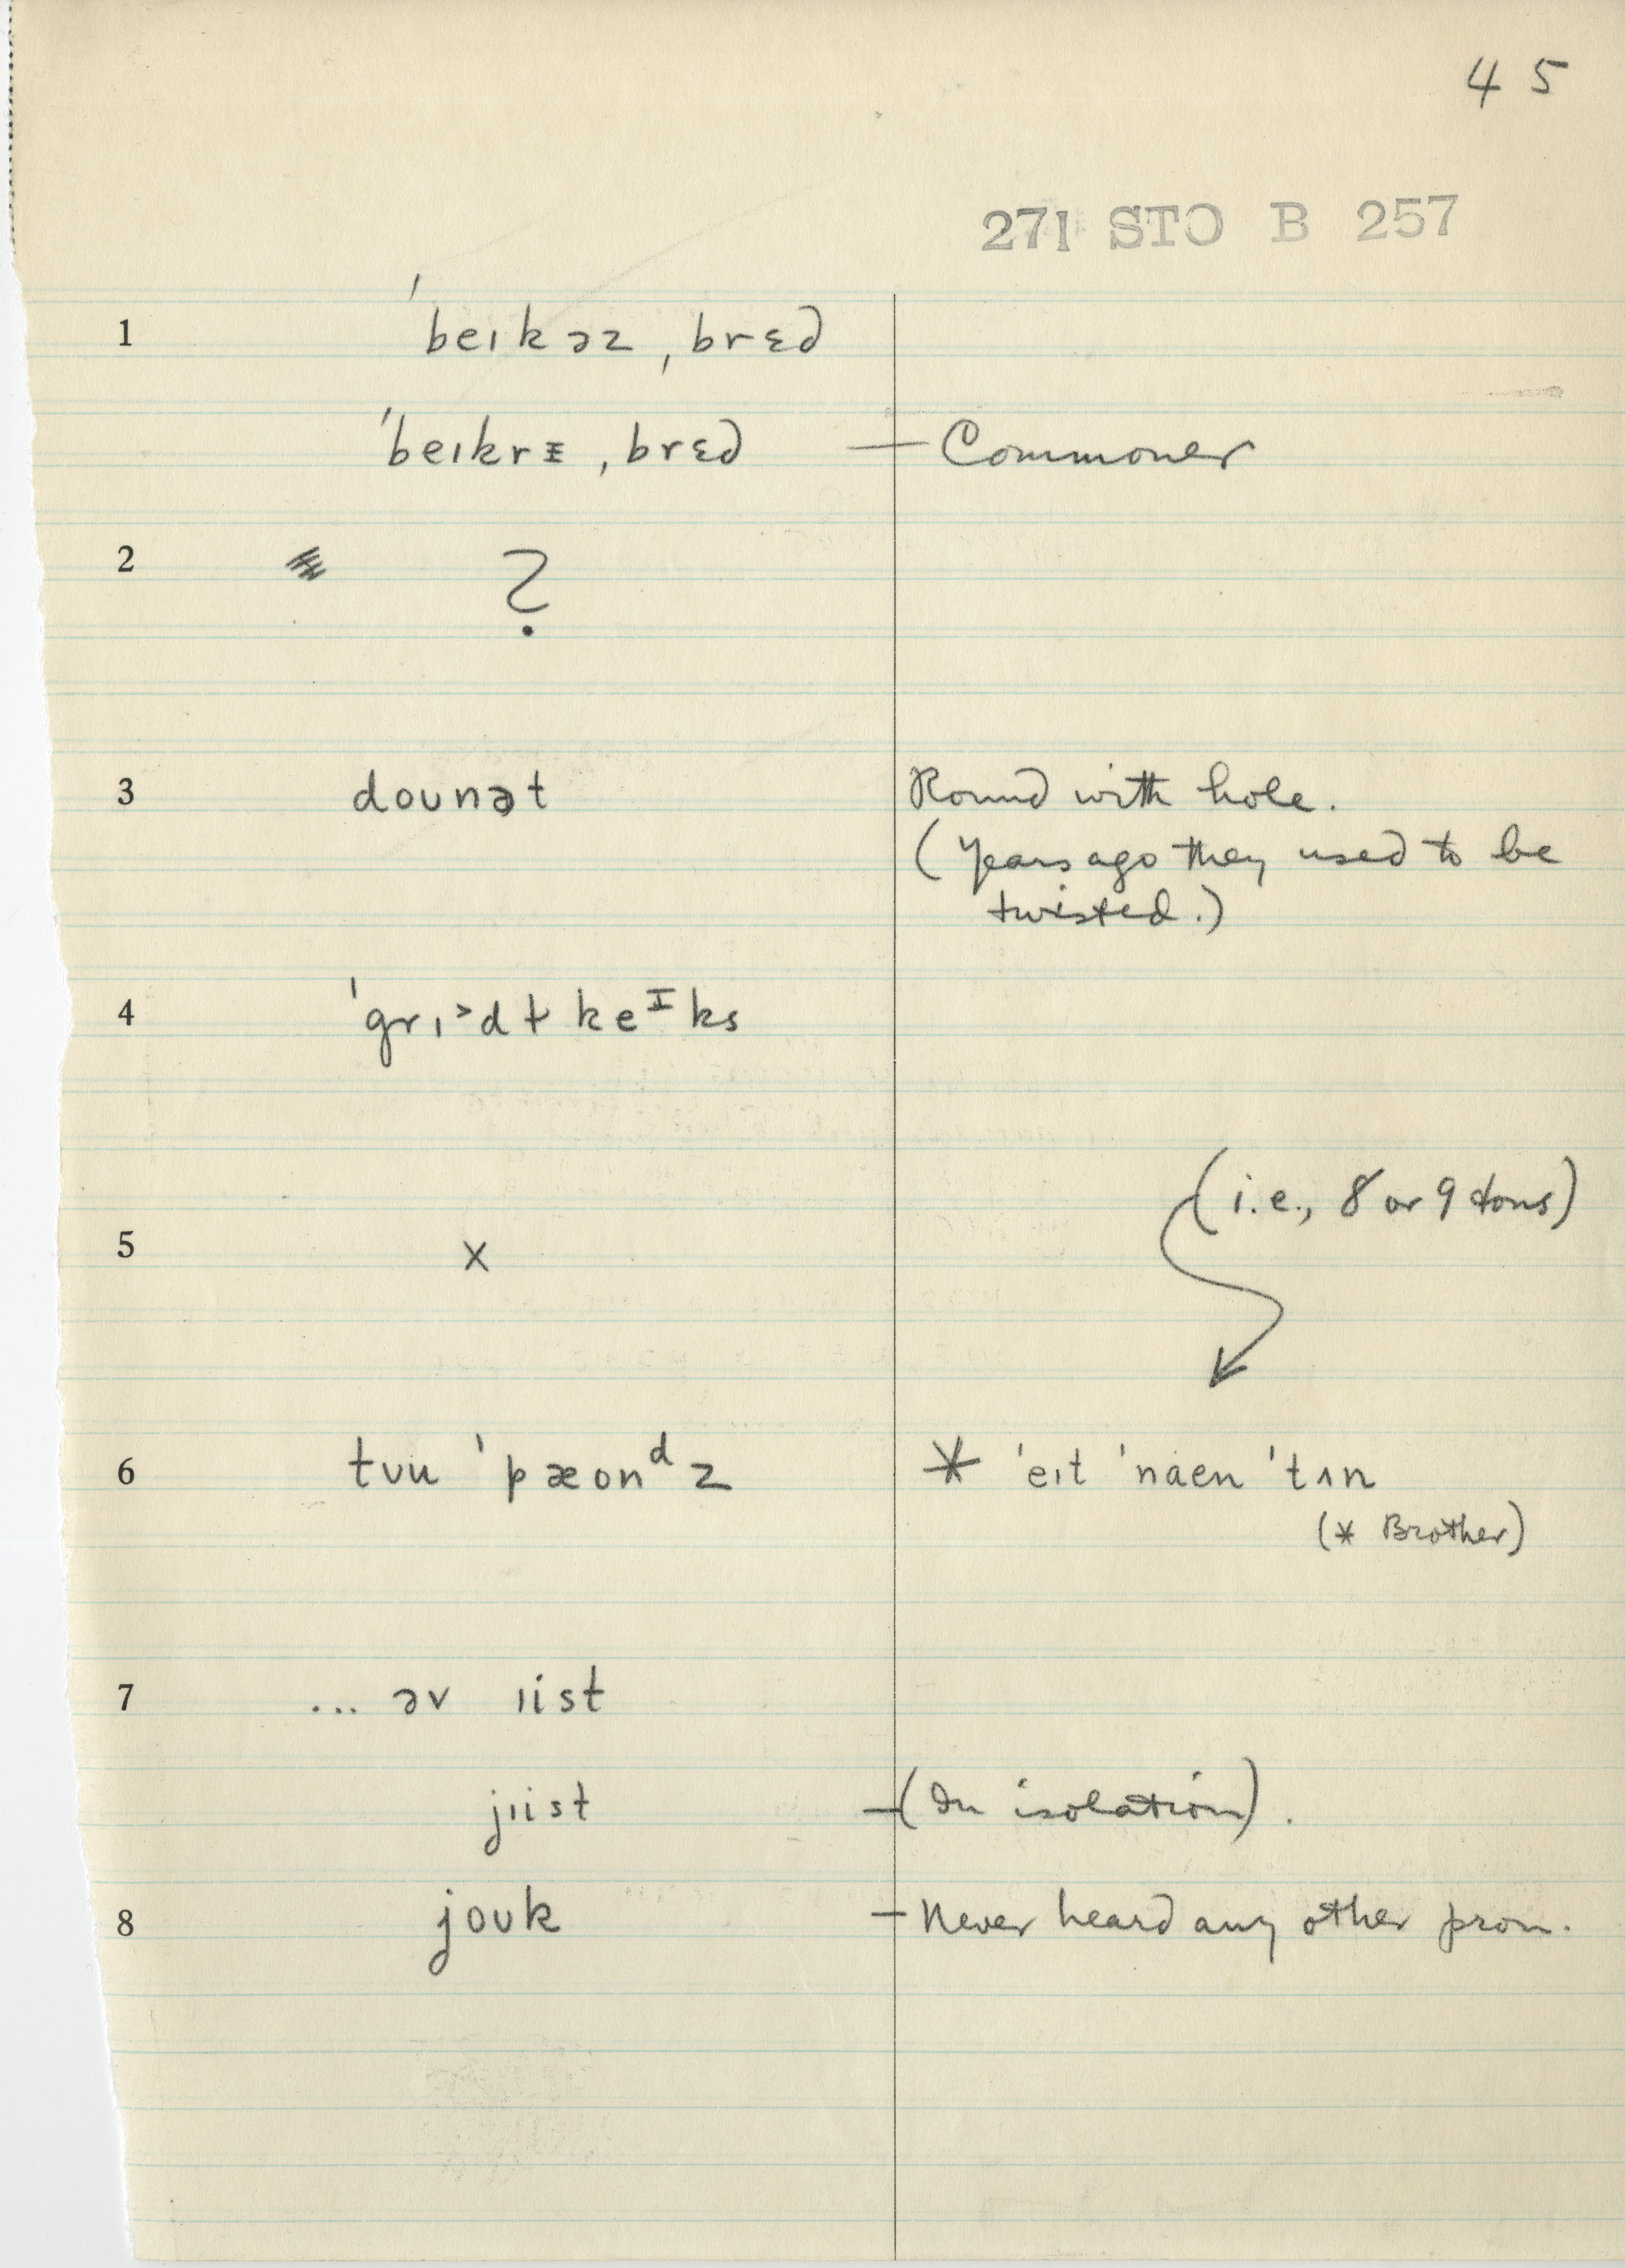 45
271 STO B 257
1 ˈbeɪkəz ˌbrɛd
ˈbeɪkrɪ ˌbrɛd — Commoner
2 ?
3 doʊnət Round with hole.
(Years ago they used to be
twisted.)
4 keᴵks
(i.e., 8 or 9 tons)
5 x
6 tʊu ˈpæonᵈz * ˈeɪt ˈnaen ˈtʌn
(* Brother)
7 ... əv ɪist
jɪist — (In isolation).
8 joʊk — Never heard any other pron.